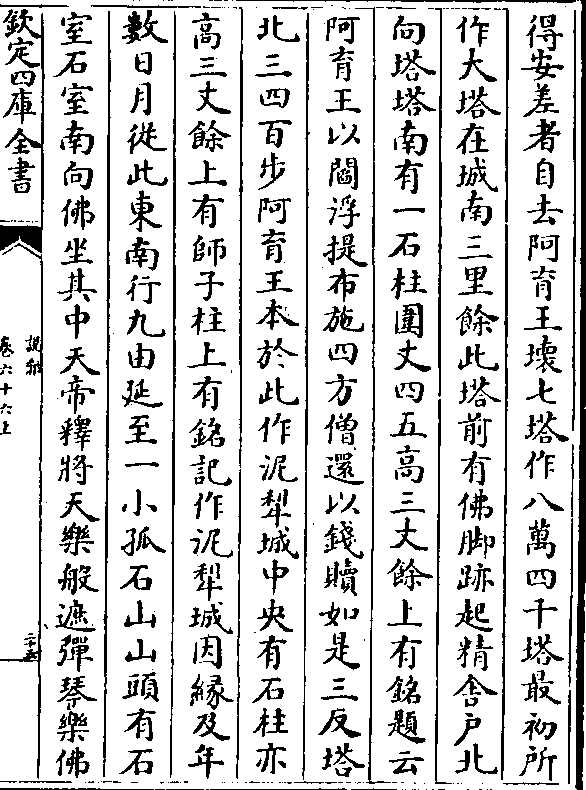 得安差者自去阿育王壞七塔作八萬四千塔最初所
作大塔在城南三里餘此塔前有佛脚跡起精舍戶北
向塔塔南有一石柱圍丈四五高三丈餘上有銘題云
阿育王以閻浮提布施四方僧還以錢贖如是三反塔
北三四百步阿育王本於此作泥犁城中央有石柱亦
高三丈餘上有師子柱上有銘記作泥犁城因緣及年
數日月從此東南行九由延至一小孤石山山頭有石
室石室南向佛坐其中天帝釋將天樂般遮彈琴樂佛
欽定四庫全書
說郛
卷六十六上
二十五